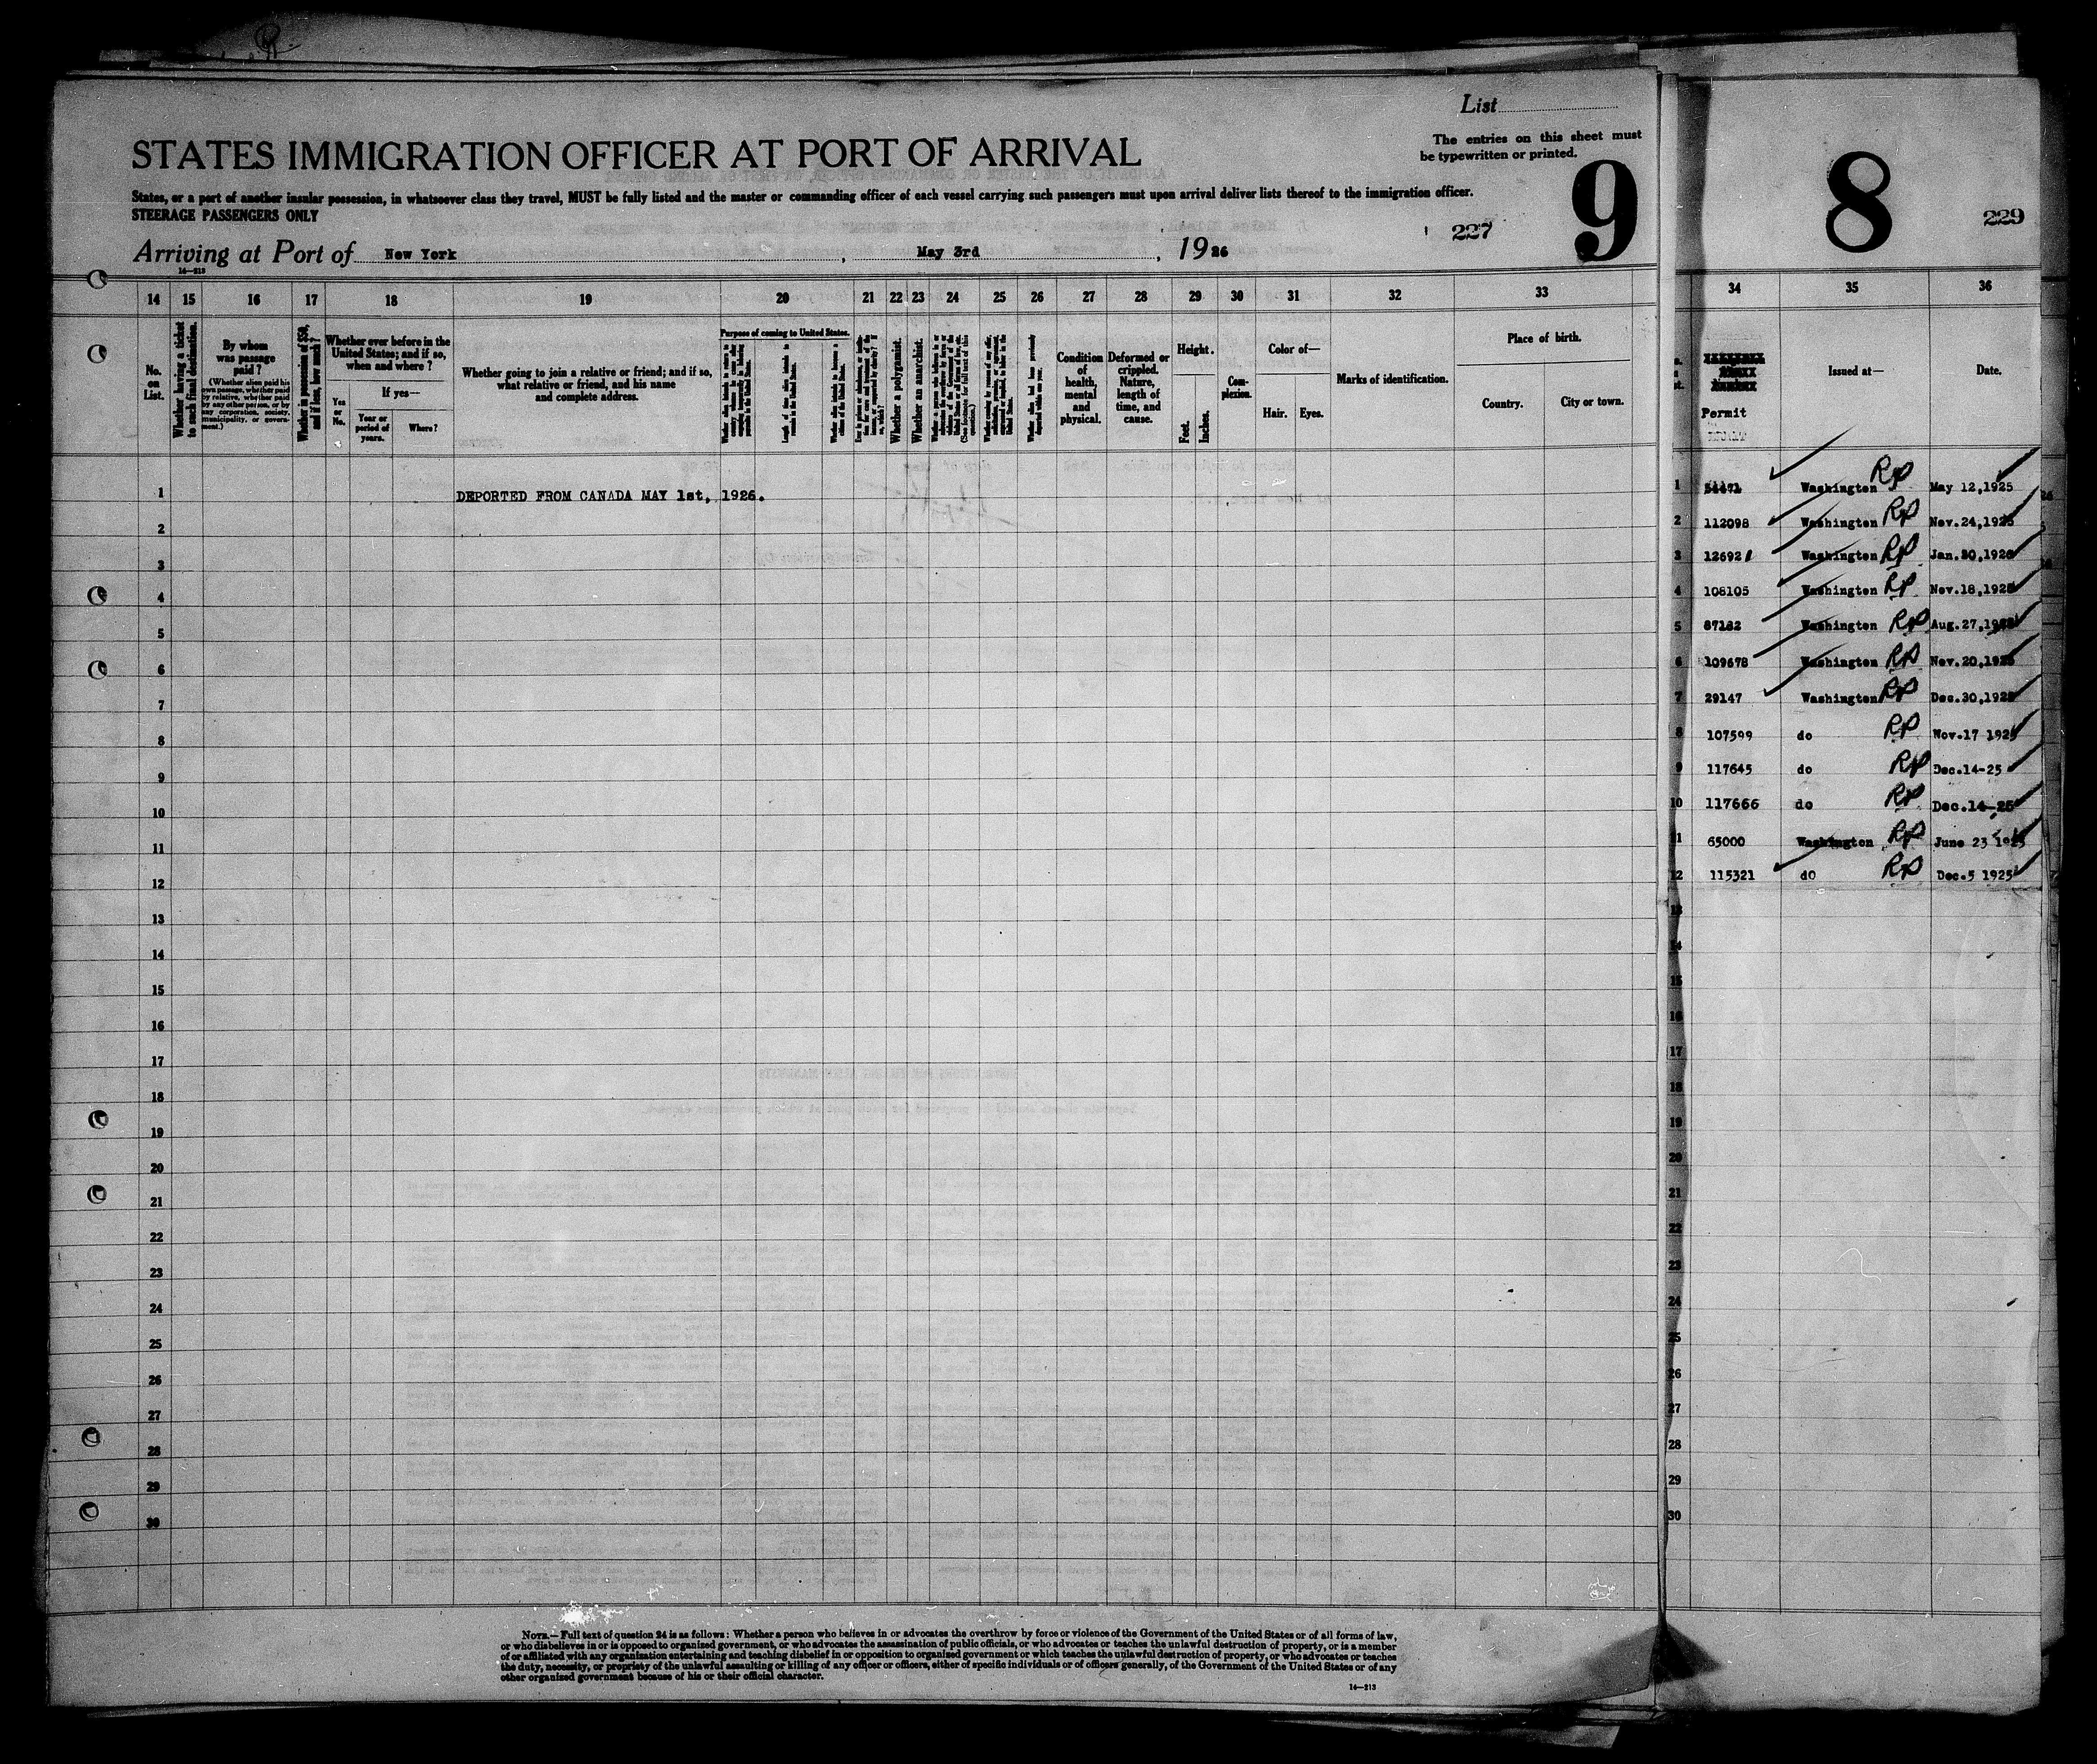 List
The entries on this sheet must
be typewritten or printed.
STATES IMMIGRATION OFFICER AT PORT OF ARRIVAL
States, or a port of another insular possession, in whatsoever class they travel, MUST be fully listed and the master or commanding officer of each vessel carrying such passengers must upon arrival deliver lists thereof to the immigration officer.
STEERAGE PASSENGERS ONLY
9
227
Arriving at Port of New York, May 3rd, 1926
14—213
14 15 16 17 18 19 20 21 22 23 24 25 26 27 28 29 30 31 32 33
No. on List.
Whether having a ticket to such final destination.
By whom was passage paid?
(Whether alien paid his own passage, whether paid by relative, whether paid by any other person, or by any corporation, society, municipality, or government.)
Whether in possession of $50, and if less, how much?
Whether ever before in the United States; and if so, when and where?
Yes or No.
If yes—
Year or period of years.
Where?
Whether going to join a relative or friend; and if so, what relative or friend, and his name and complete address.
Purpose of coming to United States.
Length of time alien intends to remain in the United States.
Whether alien intends to become a citizen of the United States.
Whether a polygamist.
Whether an anarchist.
Condition of health, mental and physical.
Deformed or crippled. Nature, length of time, and cause.
Height.
Feet.
Inches.
Complexion.
Color of—
Hair.
Eyes.
Marks of identification.
Place of birth.
Country.
City or town.
1 DEPORTED FROM CANADA MAY 1st, 1926.
2
3
4
5
6
7
8
9
10
11
12
13
14
15
16
17
18
19
20
21
22
23
24
25
26
27
28
29
30
NOTE.—Full text of question 24 is as follows: Whether a person who believes in or advocates the overthrow by force or violence of the Government of the United States or of all forms of law,
or who disbelieves in or is opposed to organized government, or who advocates the assassination of public officials, or who advocates or teaches the unlawful destruction of property, or is a member
of or affiliated with any organization entertaining and teaching disbelief in or opposition to organized government or which teaches the unlawful destruction of property, or who advocates or teaches
the duty, necessity, or propriety of the unlawful assaulting or killing of any officer or officers, either of specific individuals or of officers generally, of the Government of the United States or of any
other organized government because of his or their official character.
14—213
8
229
34 35 36
Permit
Issued at—
Date.
1 Washington RP May 12,1925
2 112098 Washington RP Nov.24,1925
3 126921 Washington RP Jan.20,1926
4 108105 Washington RP Nov.18,1925
5 87182 Washington RP Aug.27,1925
6 109678 Washington RP Nov.20,1925
7 29147 Washington RP Dec.30,1925
8 107599 do RP Nov.17 1925
9 117645 do RP Dec.14-25
10 117666 do RP Dec.14-25
11 65000 Washington RP June 23 1925
12 115321 do RP Dec.5 1925
13
14
15
16
17
18
19
20
21
22
23
24
25
26
27
28
29
30